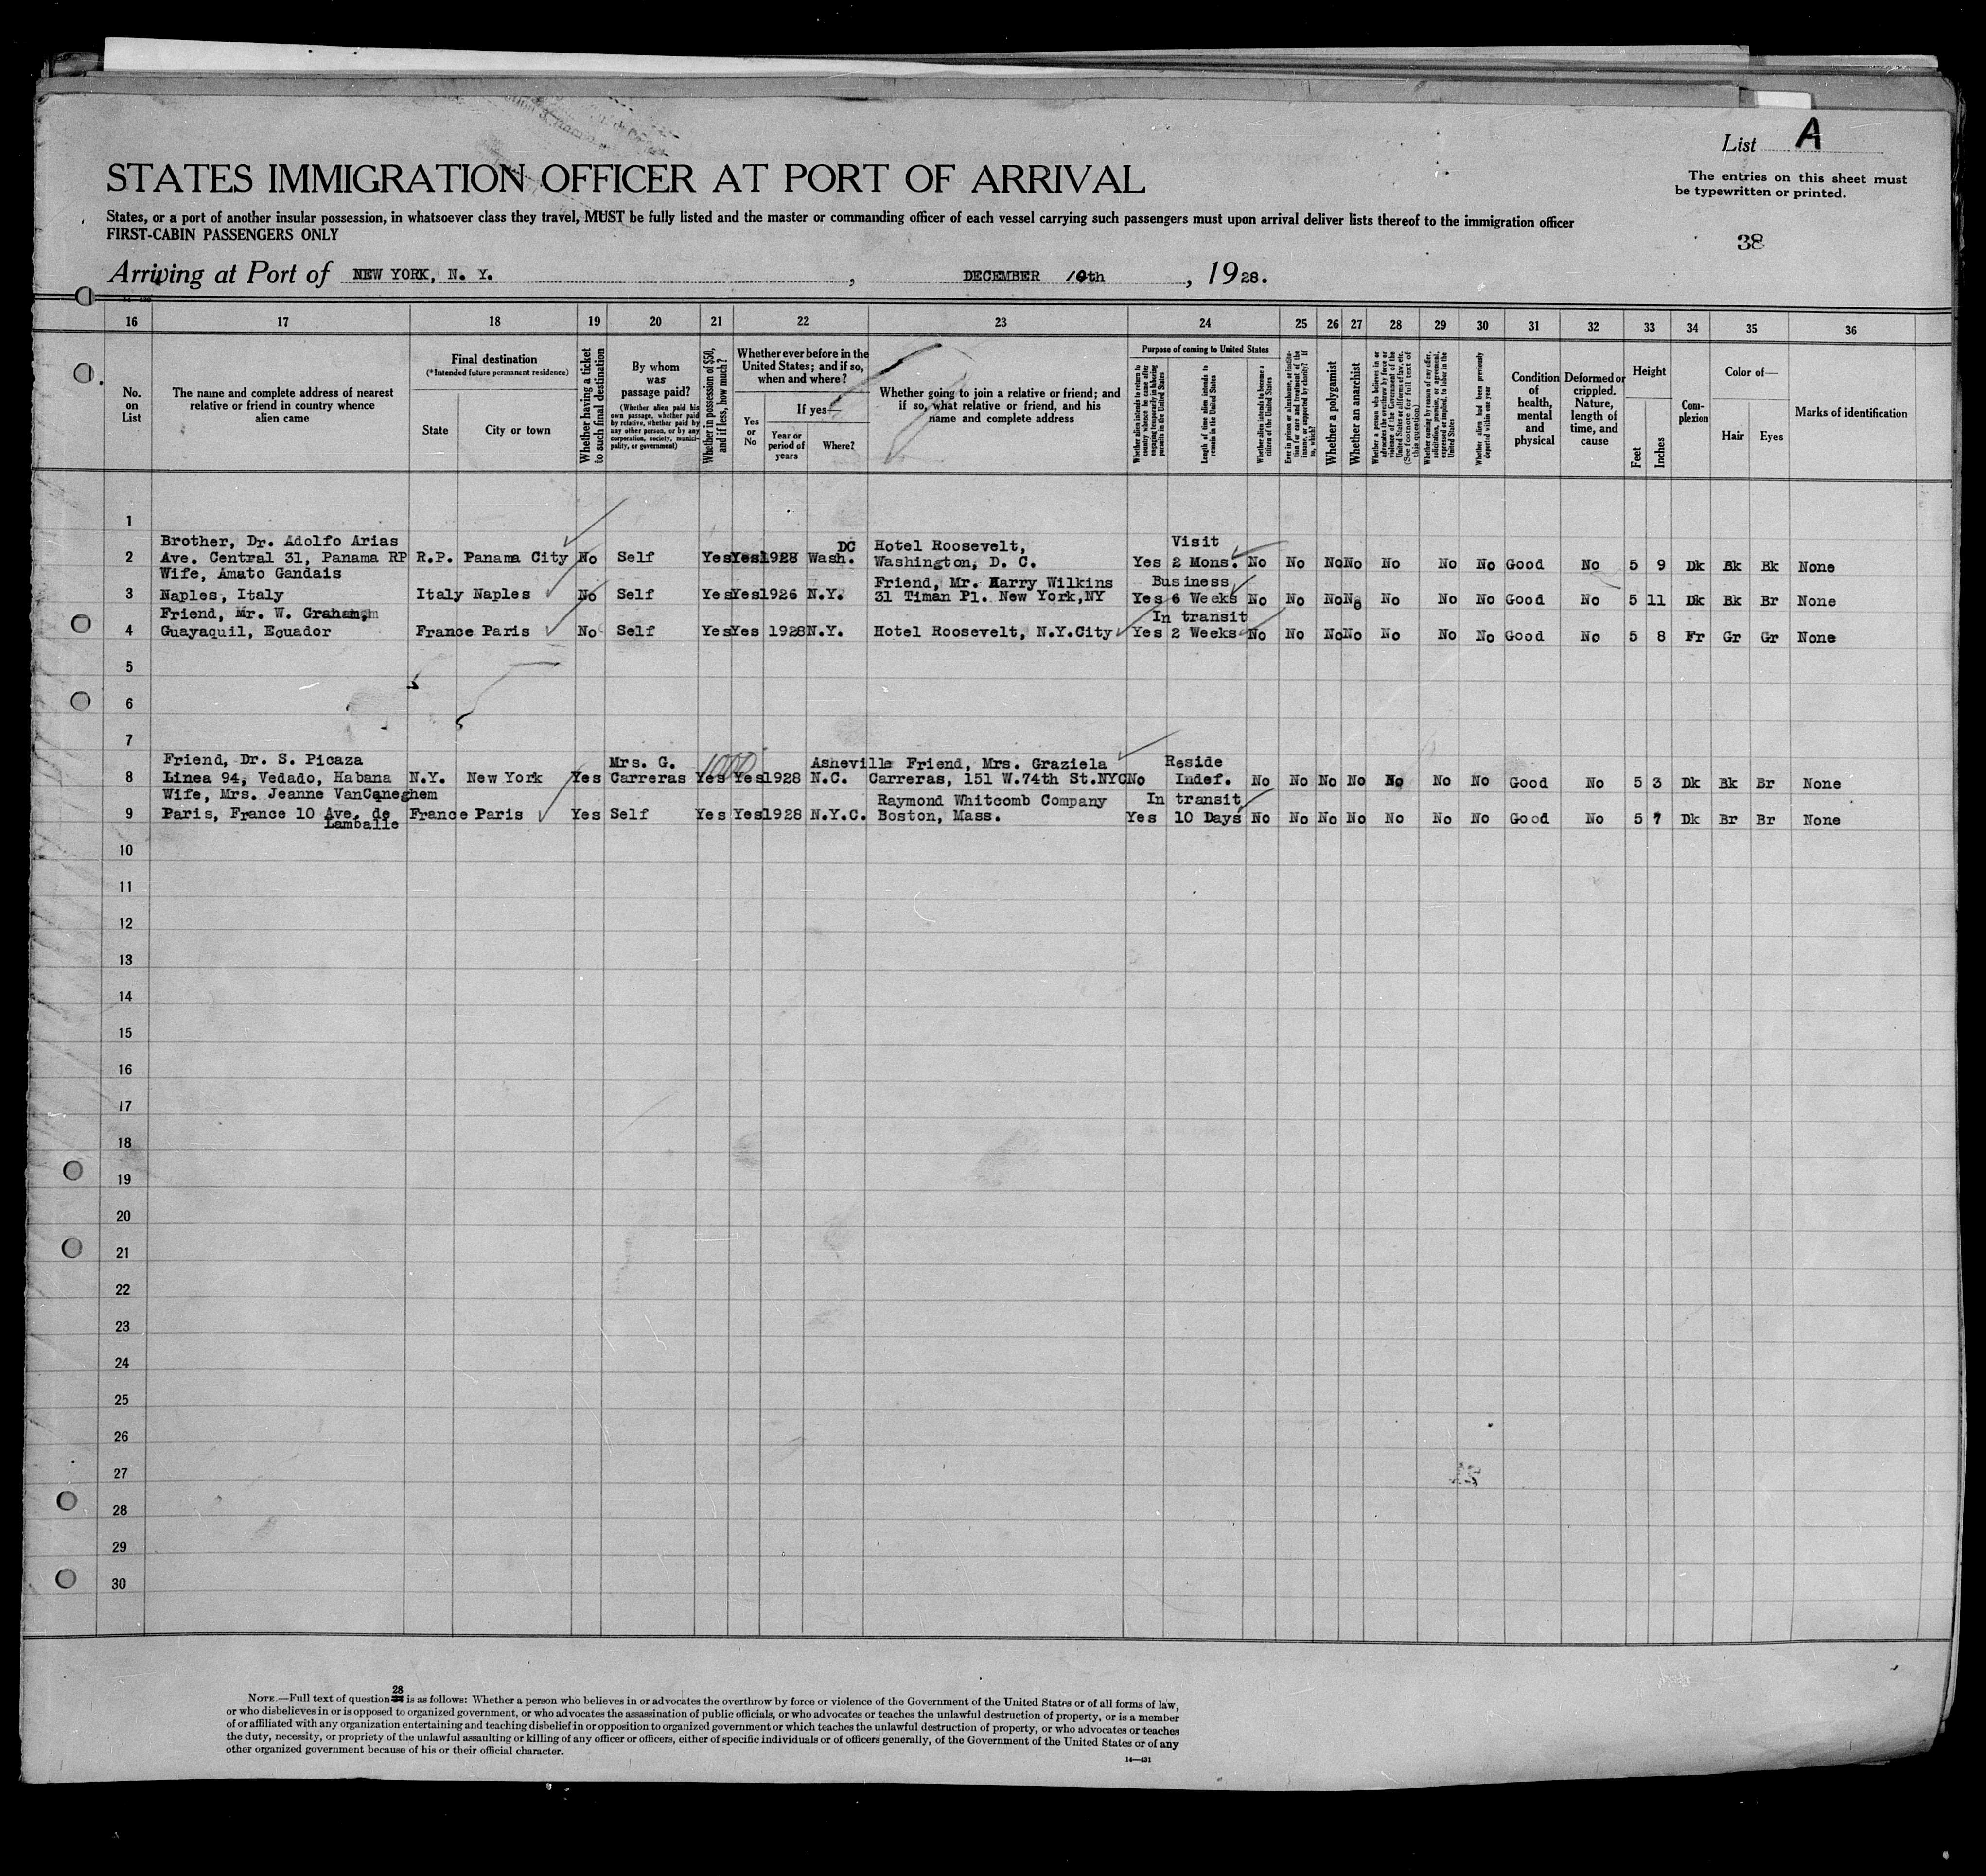 List A
STATES IMMIGRATION OFFICER AT PORT OF ARRIVAL
The entries on this sheet must
be typewritten or printed.
States, or a port of another insular possession, in whatsoever class they travel, MUST be fully listed and the master or commanding officer of each vessel carrying such passengers must upon arrival deliver lists thereof to the immigration officer
FIRST-CABIN PASSENGERS ONLY
38
Arriving at Port of NEW YORK, N. Y. , DECEMBER 10th , 1928.
16 17 18 19 20 21 22 23 24 25 26 27 28 29 30 31 32 33 34 35 36
No.
on
List
The name and complete address of nearest
relative or friend in country whence
alien came
Final destination
(*Intended future permanent residence)
State
City or town
Whether having a ticket
to such final destination
By whom
was
passage paid?
(Whether alien paid his
own passage, whether paid
by relative, whether paid by
any other person, or by any
corporation, society, munici-
pality, or government)
Whether in possession of $50,
and if less, how much?
Whether ever before in the
United States; and if so,
when and where?
Yes
or
No
If yes—
Year or
period of
years
Where?
Whether going to join a relative or friend; and
if so, what relative or friend, and his
name and complete address
Purpose of coming to United States
Whether alien intends to return to
country whence he came after
engaging temporarily in laboring
pursuits in the United States
Length of time alien intends to
remain in the United States
Whether alien intends to become a
citizen of the United States
Ever in prison or almshouse, or institu-
tion for care and treatment of the
insane, or supported by charity? If
so, which?
Whether a polygamist
Whether an anarchist
Whether a person who believes in or
advocates the overthrow by force or
violence of the Government of the
United States or all forms of law, etc.
(See footnote for full text of
this question)
Whether coming by reason of any offer,
solicitation, promise, or agreement,
expressed or implied, to labor in the
United States
Whether alien had been previously
deported within one year
Condition
of
health,
mental
and
physical
Deformed or
crippled.
Nature,
length of
time, and
cause
Height
Feet
Inches
Com-
plexion
Color of—
Hair
Eyes
Marks of identification
1
Brother, Dr. Adolfo Arias DC Hotel Roosevelt, Visit
2 Ave. Central 31, Panama RP R.P. Panama City No Self Yes Yes 1928 Wash. Washington, D. C. Yes 2 Mons. No No No No No No No Good No 5 9 Dk Bk Bk None
Wife, Amato Gandais Friend, Mr. Harry Wilkins Business
3 Naples, Italy Italy Naples No Self Yes Yes 1926 N.Y. 31 Timan Pl. New York,NY Yes 6 Weeks No No No No No No No Good No 5 11 Dk Bk Br None
Friend, Mr. W. Graham, In transit
4 Guayaquil, Ecuador France Paris No Self Yes Yes 1928 N.Y. Hotel Roosevelt, N.Y.City Yes 2 Weeks No No No No No No No Good No 5 8 Fr Gr Gr None
5
6
7
Friend, Dr. S. Picaza Mrs. G. 1000 Asheville Friend, Mrs. Graziela Reside
8 Linea 94, Vedado, Habana N.Y. New York Yes Carreras Yes Yes 1928 N.C. Carreras, 151 W.74th St.NYC No Indef. No No No No No No No Good No 5 3 Dk Bk Br None
Wife, Mrs. Jeanne VanCaneghem Raymond Whitcomb Company In transit
9 Paris, France 10 Ave. de France Paris Yes Self Yes Yes 1928 N.Y.C. Boston, Mass. Yes 10 Days No No No No No No No Good No 5 7 Dk Br Br None
Lamballe
10
11
12
13
14
15
16
17
18
19
20
21
22
23
24
25
26
27
28
29
30
28
NOTE.—Full text of question is as follows: Whether a person who believes in or advocates the overthrow by force or violence of the Government of the United States or of all forms of law,
or who disbelieves in or is opposed to organized government, or who advocates the assassination of public officials, or who advocates or teaches the unlawful destruction of property, or is a member
of or affiliated with any organization entertaining and teaching disbelief in or opposition to organized government or which teaches the unlawful destruction of property, or who advocates or teaches
the duty, necessity, or propriety of the unlawful assaulting or killing of any officer or officers, either of specific individuals or of officers generally, of the Government of the United States or of any
other organized government because of his or their official character.
14—431